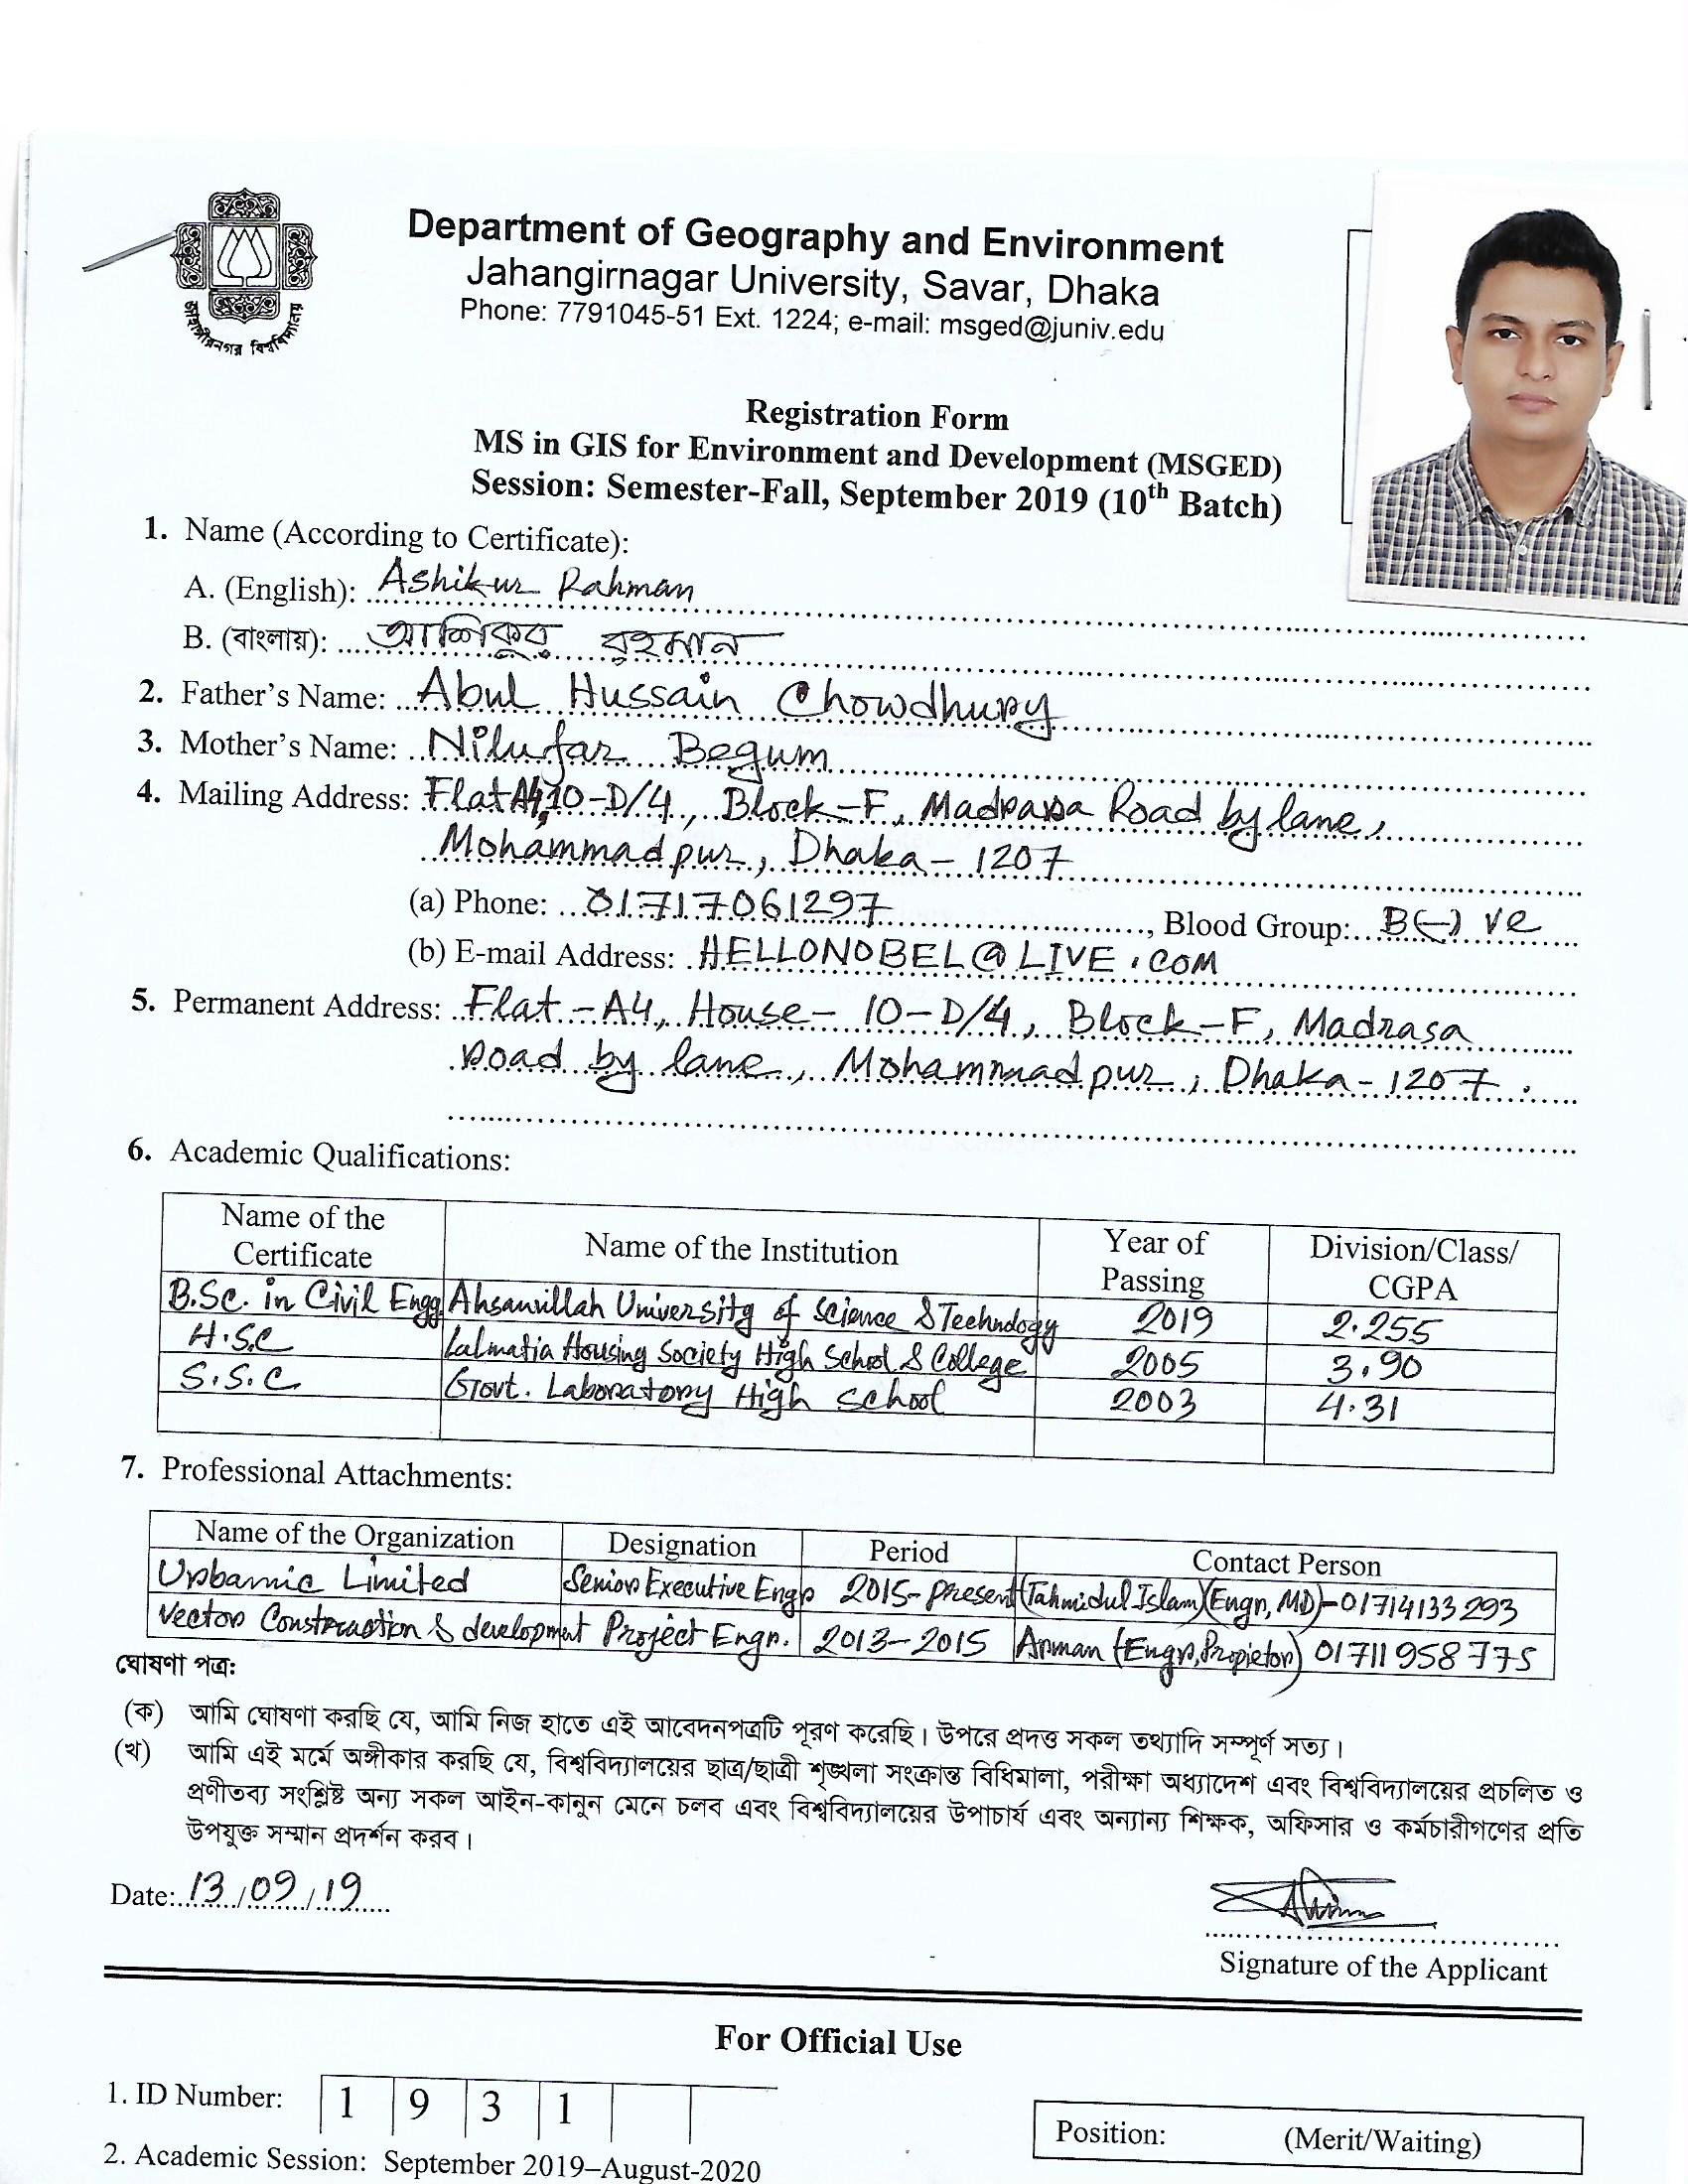 জাহাঙ্গীরনগর বিশ্ববিদ্যালয়
Department of Geography and Environment
Jahangirnagar University, Savar, Dhaka
Phone: 7791045-51 Ext. 1224; e-mail: msged@juniv.edu
Registration Form
MS in GIS for Environment and Development (MSGED)
Session: Semester-Fall, September 2019 (10th Batch)
1. Name (According to Certificate):
A. (English): Ashikur Rahman
B. (বাংলায়): আশিকুর রহমান
2. Father's Name: Abul Hussain Chowdhury
3. Mother's Name: Nilufar Begum
4. Mailing Address: Flat A4, 10-D/4, Block-F, Madrasa Road by lane,
Mohammadpur, Dhaka-1207
(a) Phone: 01717061297, Blood Group: B(-) ve
(b) E-mail Address: HELLONOBEL@LIVE.COM
5. Permanent Address: Flat-A4, House-10-D/4, Block-F, Madrasa
Road by lane, Mohammadpur, Dhaka-1207.
6. Academic Qualifications:
Name of the Certificate Name of the Institution Year of Passing Division/Class/CGPA
B.Sc. in Civil Engg Ahsanullah University of Science & Technology 2019 2.255
H.S.C Lalmatia Housing Society High School & College 2005 3.90
S.S.C Govt. Laboratory High School 2003 4.31
7. Professional Attachments:
Name of the Organization Designation Period Contact Person
Urbamic Limited Senior Executive Engr 2015-present (Tahmidul Islam)(Engr, MD)-01714133293
Vector Construction & development Project Engr. 2013-2015 Arman (Engr, Propietor) 01711958775
ঘোষণা পত্র:
(ক) আমি ঘোষণা করছি যে, আমি নিজ হাতে এই আবেদনপত্রটি পূরণ করেছি। উপরে প্রদত্ত সকল তথ্যাদি সম্পূর্ণ সত্য।
(খ) আমি এই মর্মে অঙ্গীকার করছি যে, বিশ্ববিদ্যালয়ের ছাত্র/ছাত্রী শৃঙ্খলা সংক্রান্ত বিধিমালা, পরীক্ষা অধ্যাদেশ এবং বিশ্ববিদ্যালয়ের প্রচলিত ও
প্রণীতব্য সংশ্লিষ্ট অন্য সকল আইন-কানুন মেনে চলব এবং বিশ্ববিদ্যালয়ের উপাচার্য এবং অন্যান্য শিক্ষক, অফিসার ও কর্মচারীগণের প্রতি
উপযুক্ত সম্মান প্রদর্শন করব।
Date: 13/09/19
Signature of the Applicant
For Official Use
1. ID Number: 1 9 3 1
Position: (Merit/Waiting)
2. Academic Session: September 2019–August-2020